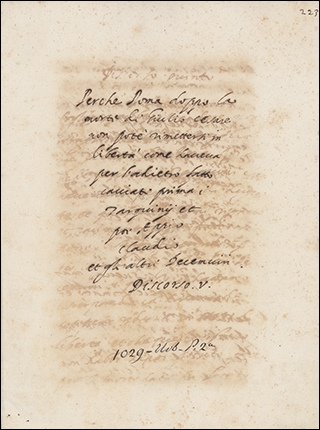 223
Perche Roma doppo la
morte di Giulio Cesare
non potè rimettersi in
libertà come haveva
per l'adietro fatto
cacciati prima i
Tarquinij et
poi Appio
Claudio
et gl'altri Decenviri.
Discorso. V.
1029-Urb-P.2a